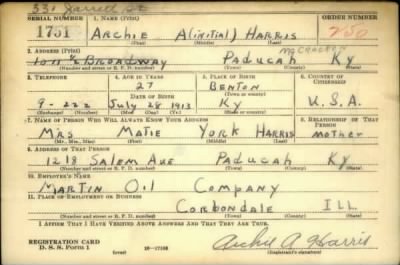 331 Jarrell St
SERIAL NUMBER 1. NAME (Print)
1751 ARCHIE A(INITIAL) HARRIS 250
(First) (Middle) (Last)
2. ADDRESS (Print) McCRACKEN
1011½ BROADWAY PADUCAH KY
(Number and street or R. F. D. number) (Town) (County) (State)
3. TELEPHONE 4. AGE IN YEARS 5. PLACE OF BIRTH 6. COUNTRY OF CITIZENSHIP
27 BENTON
DATE OF BIRTH (Town or county)
9-222 July 28 1913 KY U.S.A.
(Mo.) (Day) (Yr.) (State or country)
7. NAME OF PERSON WHO WILL ALWAYS KNOW YOUR ADDRESS 8. RELATIONSHIP OF THAT PERSON
MRS MATIE YORK HARRIS MOTHER
(Mr., Mrs., Miss) (First) (Middle) (Last)
9. ADDRESS OF THAT PERSON
1218 SALEM AVE PADUCAH KY
(Number and street or R. F. D. number) (Town) (County) (State)
10. EMPLOYER'S NAME
MARTIN OIL COMPANY
11. PLACE OF EMPLOYMENT OR BUSINESS
CORBONDALE ILL
(Number and street or R. F. D. number) (Town) (County) (State)
I AFFIRM THAT I HAVE VERIFIED ABOVE ANSWERS AND THAT THEY ARE TRUE.
REGISTRATION CARD
D. S. S. Form 1 (over) 16-17105 Archie A Harris
(Registrant's signature)